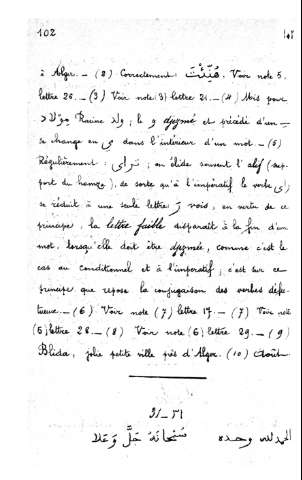 102 ١٠٢
à Alger. — (2) Correctement: هُنِّئْتَ. Voir note 5,
lettre 26. — (3) Voir note (3) lettre 21. — (4) Mis pour
مِوْلاد Racine ولد; le و djezmé et précédé d'un —
se change en ي dans l'intérieur d'un mot. — (5)
Régulièrement: تَرْأى; on élide souvent l'alef (sup-
port du hamza), de sorte qu'à l'impératif le verbe رأى
se réduit à une seule lettre رَ vois, en vertu de ce
principe, la lettre faible disparaît à la fin d'un
mot, lorsqu'elle doit être djezmée, comme c'est le
cas au conditionnel et à l'impératif; c'est sur ce
principe que repose la conjugaison des verbes défec-
tueux. — (6) Voir note (7) lettre 17. — (7) Voir note
(6) lettre 28. — (8) Voir note (6) lettre 29. — (9)
Blida, jolie petite ville près d'Alger. (10) Août.
31 — ٣١
الحمد لله وحده سُبْحَانَهُ جَلَّ وَعَلَا